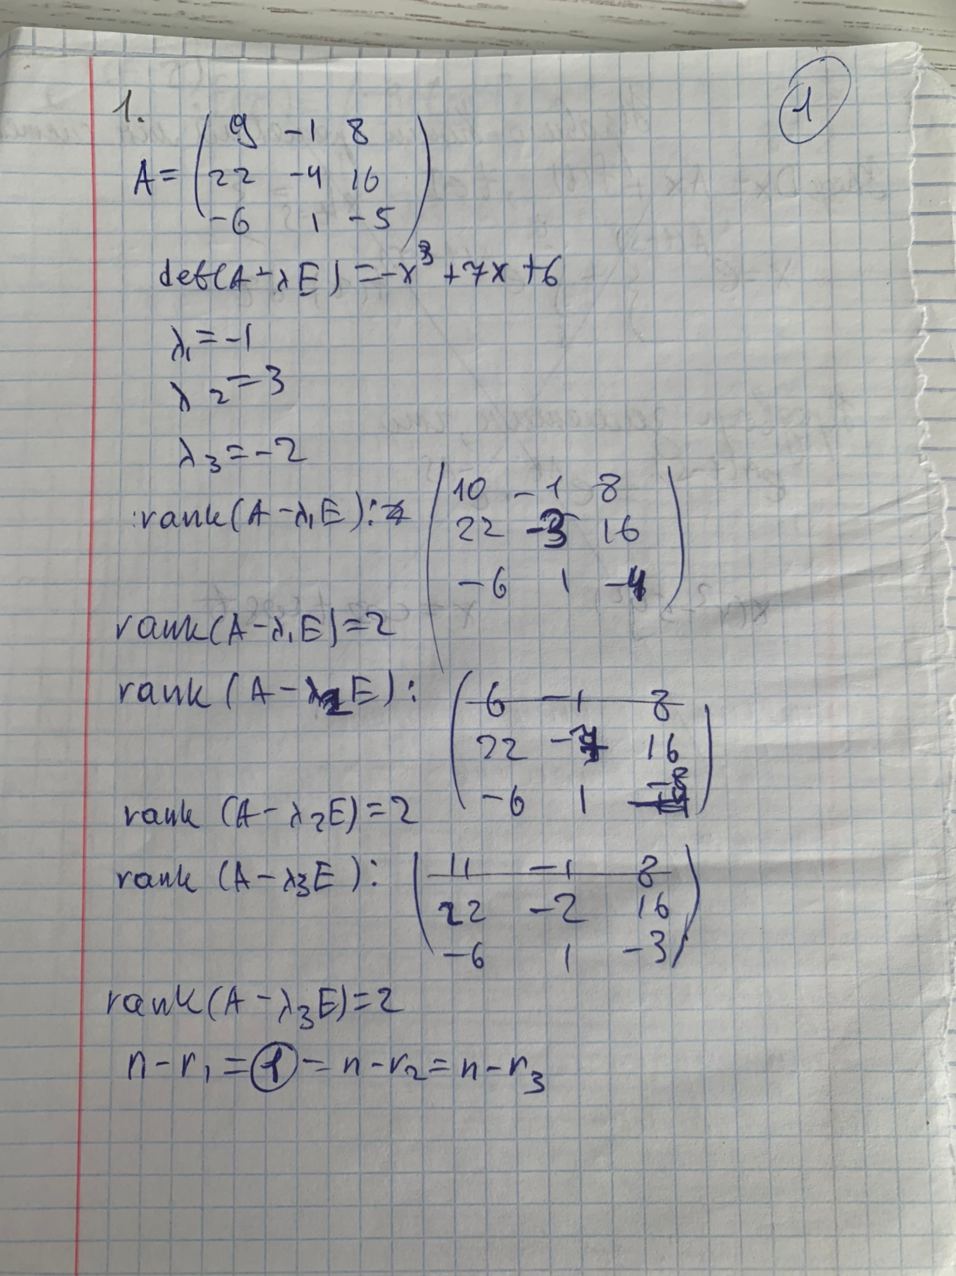 1
1.
A = ( 9 -1 8
22 -4 16
-6 1 -5 )
det(A - λE) = -x³ + 7x + 6
λ₁ = -1
λ₂ = 3
λ₃ = -2
rank(A - λ₁E): ( 10 -1 8
22 -3 16
-6 1 -4 )
rank(A - λ₁E) = 2
rank (A - λ₂E): ( 6 -1 8
22 -7 16
-6 1 -8 )
rank (A - λ₂E) = 2
rank (A - λ₃E): ( 11 -1 8
22 -2 16
-6 1 -3 )
rank(A - λ₃E) = 2
n - r₁ = 1 = n - r₂ = n - r₃